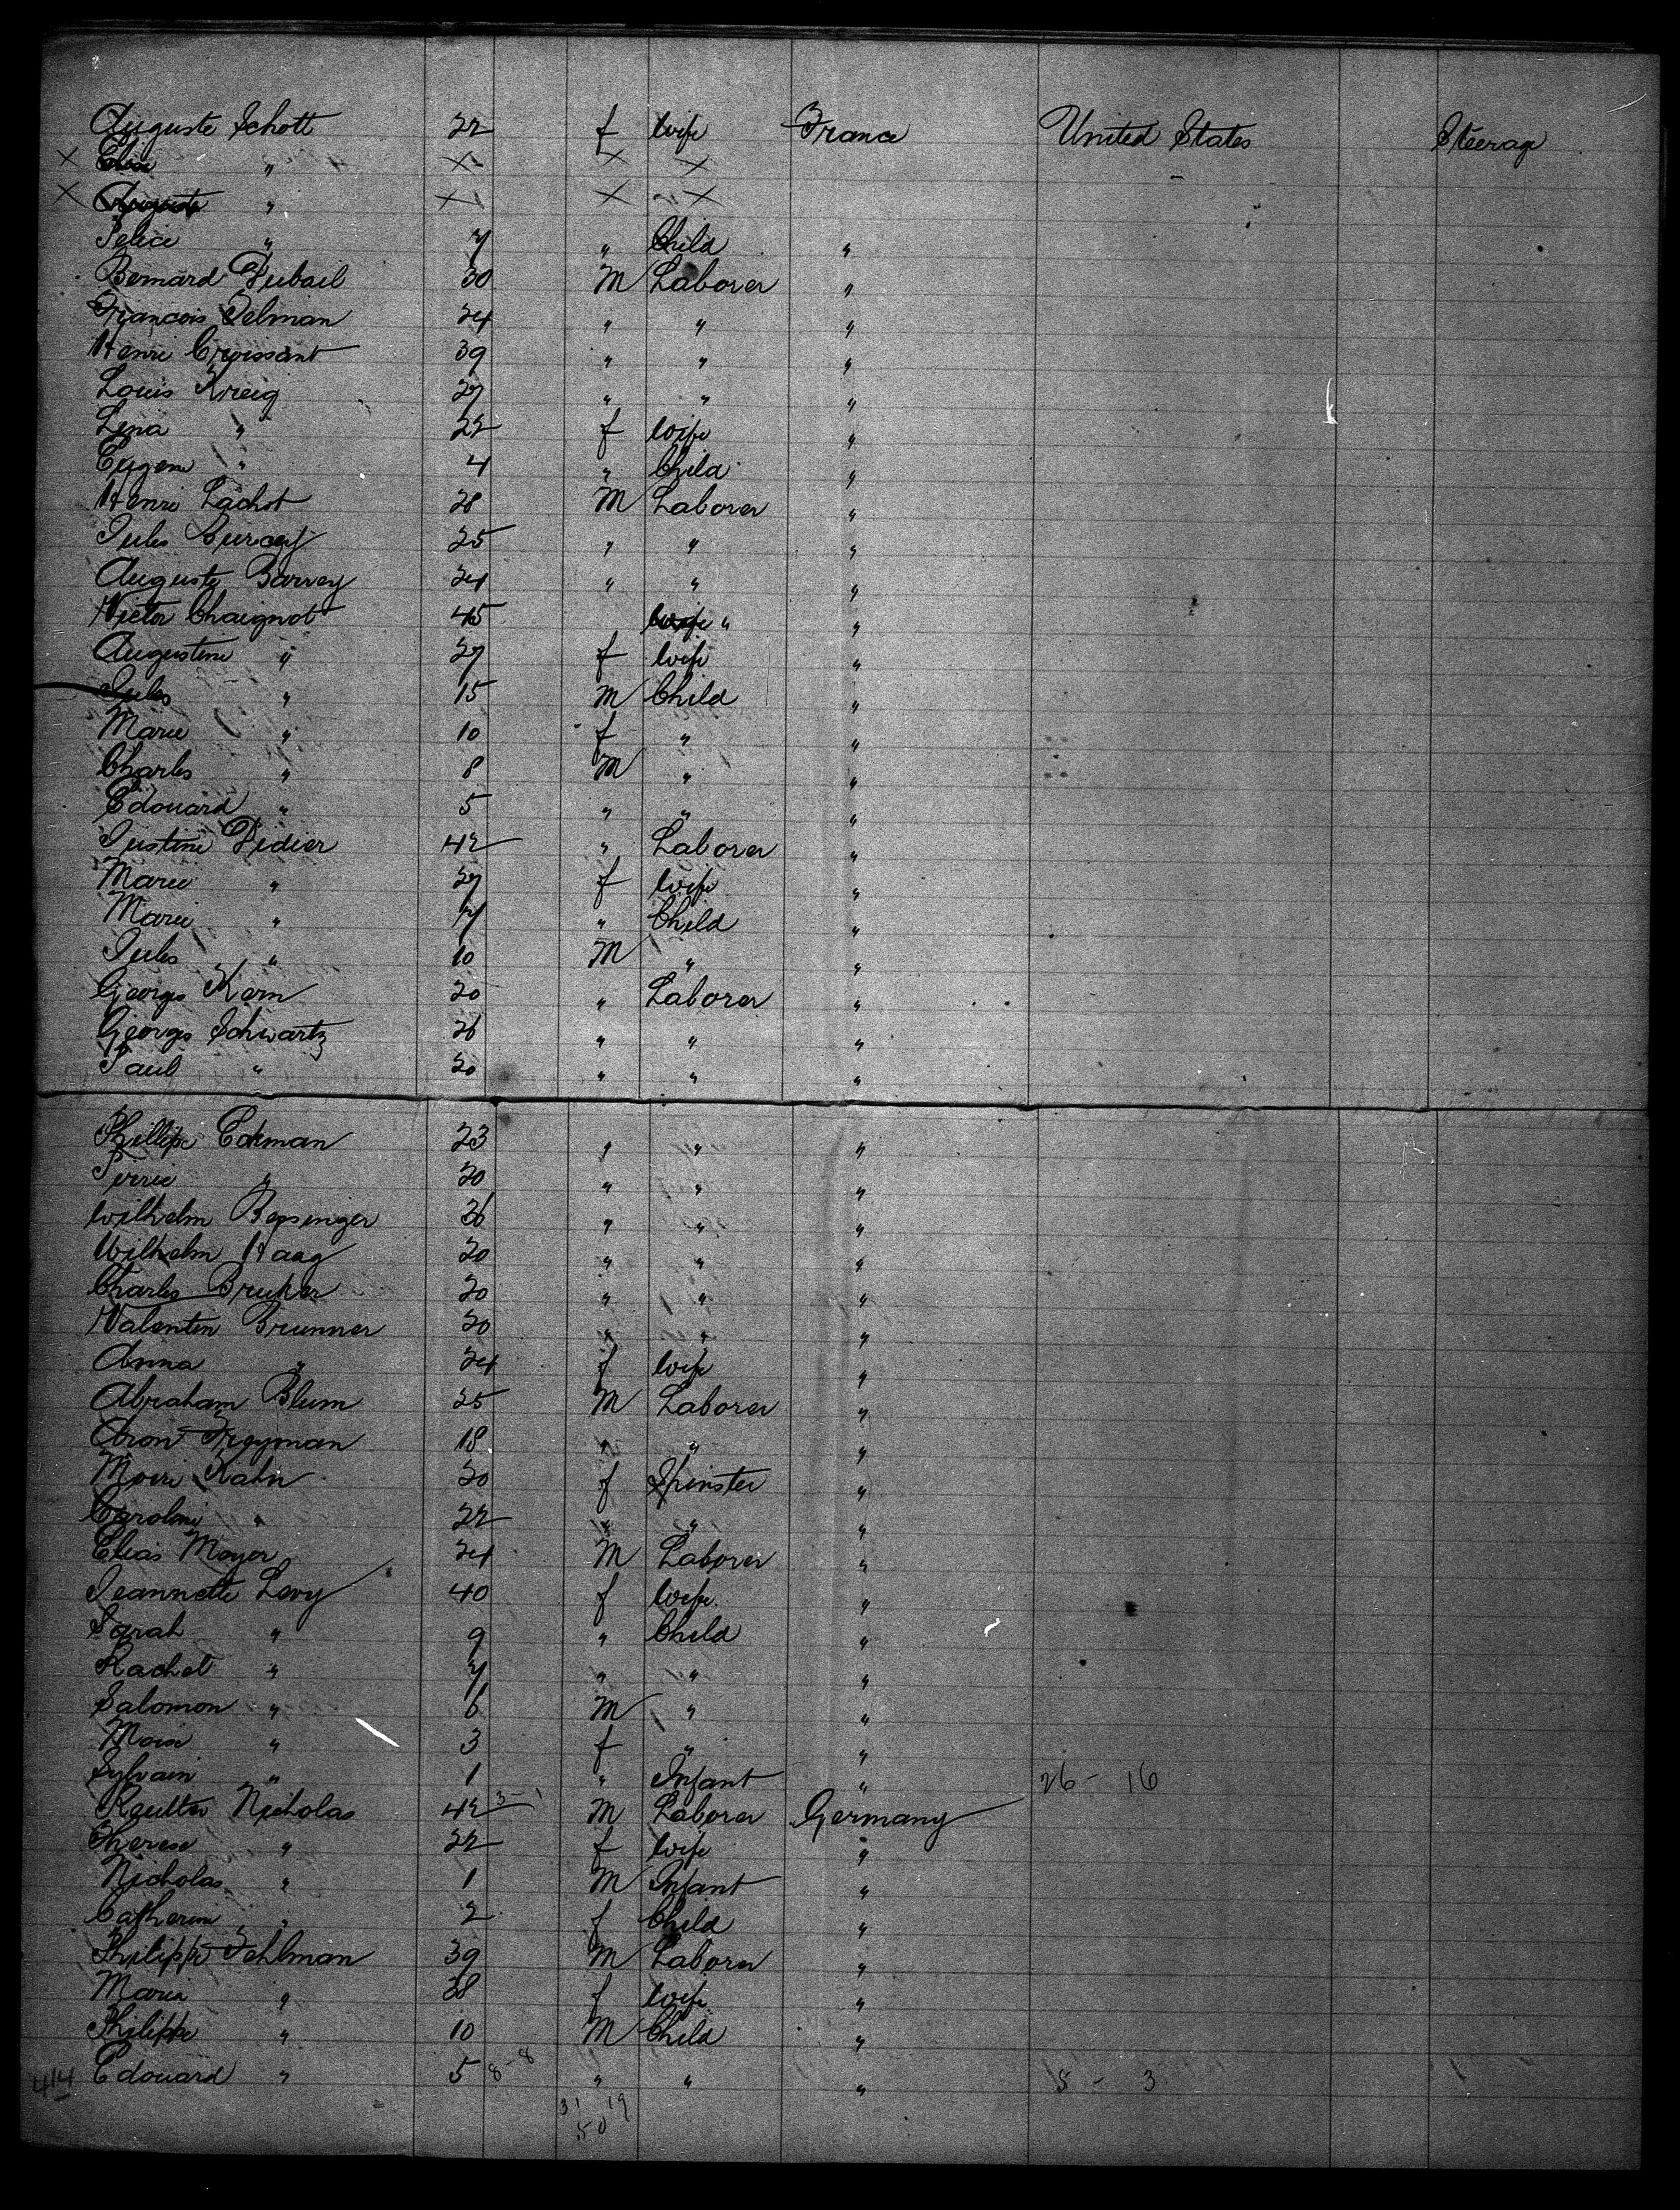 Auguste Schott 22 f wife France United States Steerage
X Elise " X X X
X Auguste " X X X
Felice " 7 " Child "
Bernard Dubail 30 M Laborer "
Francois Delman 24 " " "
Henri Croissant 39 " " "
Louis Kreig 27 " " "
Lena " 22 f wife "
Eugene " 4 " Child "
Henri Lachot 28 M Laborer "
Jules 25 " " "
Auguste Barvey 24 " " "
Victor Chaignot 45 wife " "
Augustine " 27 f wife "
Jules " 15 M Child "
Marie " 10 f " "
Charles " 8 M " "
Edouard " 5 " " "
Justine Didier 42 " Laborer "
Marie " 27 f wife "
Marie " 7 " Child "
Jules " 10 M " "
Georges Kern 20 " Laborer "
Georges Schwartz 26 " " "
Paul " 20 " " "
Phillipe Eckman 23 " " "
Pierre " 20 " " "
Wilhelm 36 " " "
Wilhelm Haag 20 " " "
Charles Bruker 20 " " "
Valentin Brunner 30 " " "
Anna " 24 f wife "
Abraham Blum 25 M Laborer "
Aron Freyman 18 " " "
Kahn 20 f Spinster "
Caroline " 22 " " "
Elias Moyer 24 M Laborer "
Jeannette Levy 40 f wife "
Sarah " 9 " Child "
Rachel " 7 " " "
Salomon " 6 M " "
Moise " 3 f " "
Sylvain " 1 " Infant " 26 - 16
Reutter Nicholas 42 3-1 M Laborer Germany
Therese " 22 f wife "
Nicholas " 1 M Infant "
Catherine " 2 f Child "
Philippe Fehlman 39 M Laborer "
Maria " 38 f wife "
Philippe " 10 M Child "
414 Edouard " 5 8-8 " " " 5 - 3
31 19
50